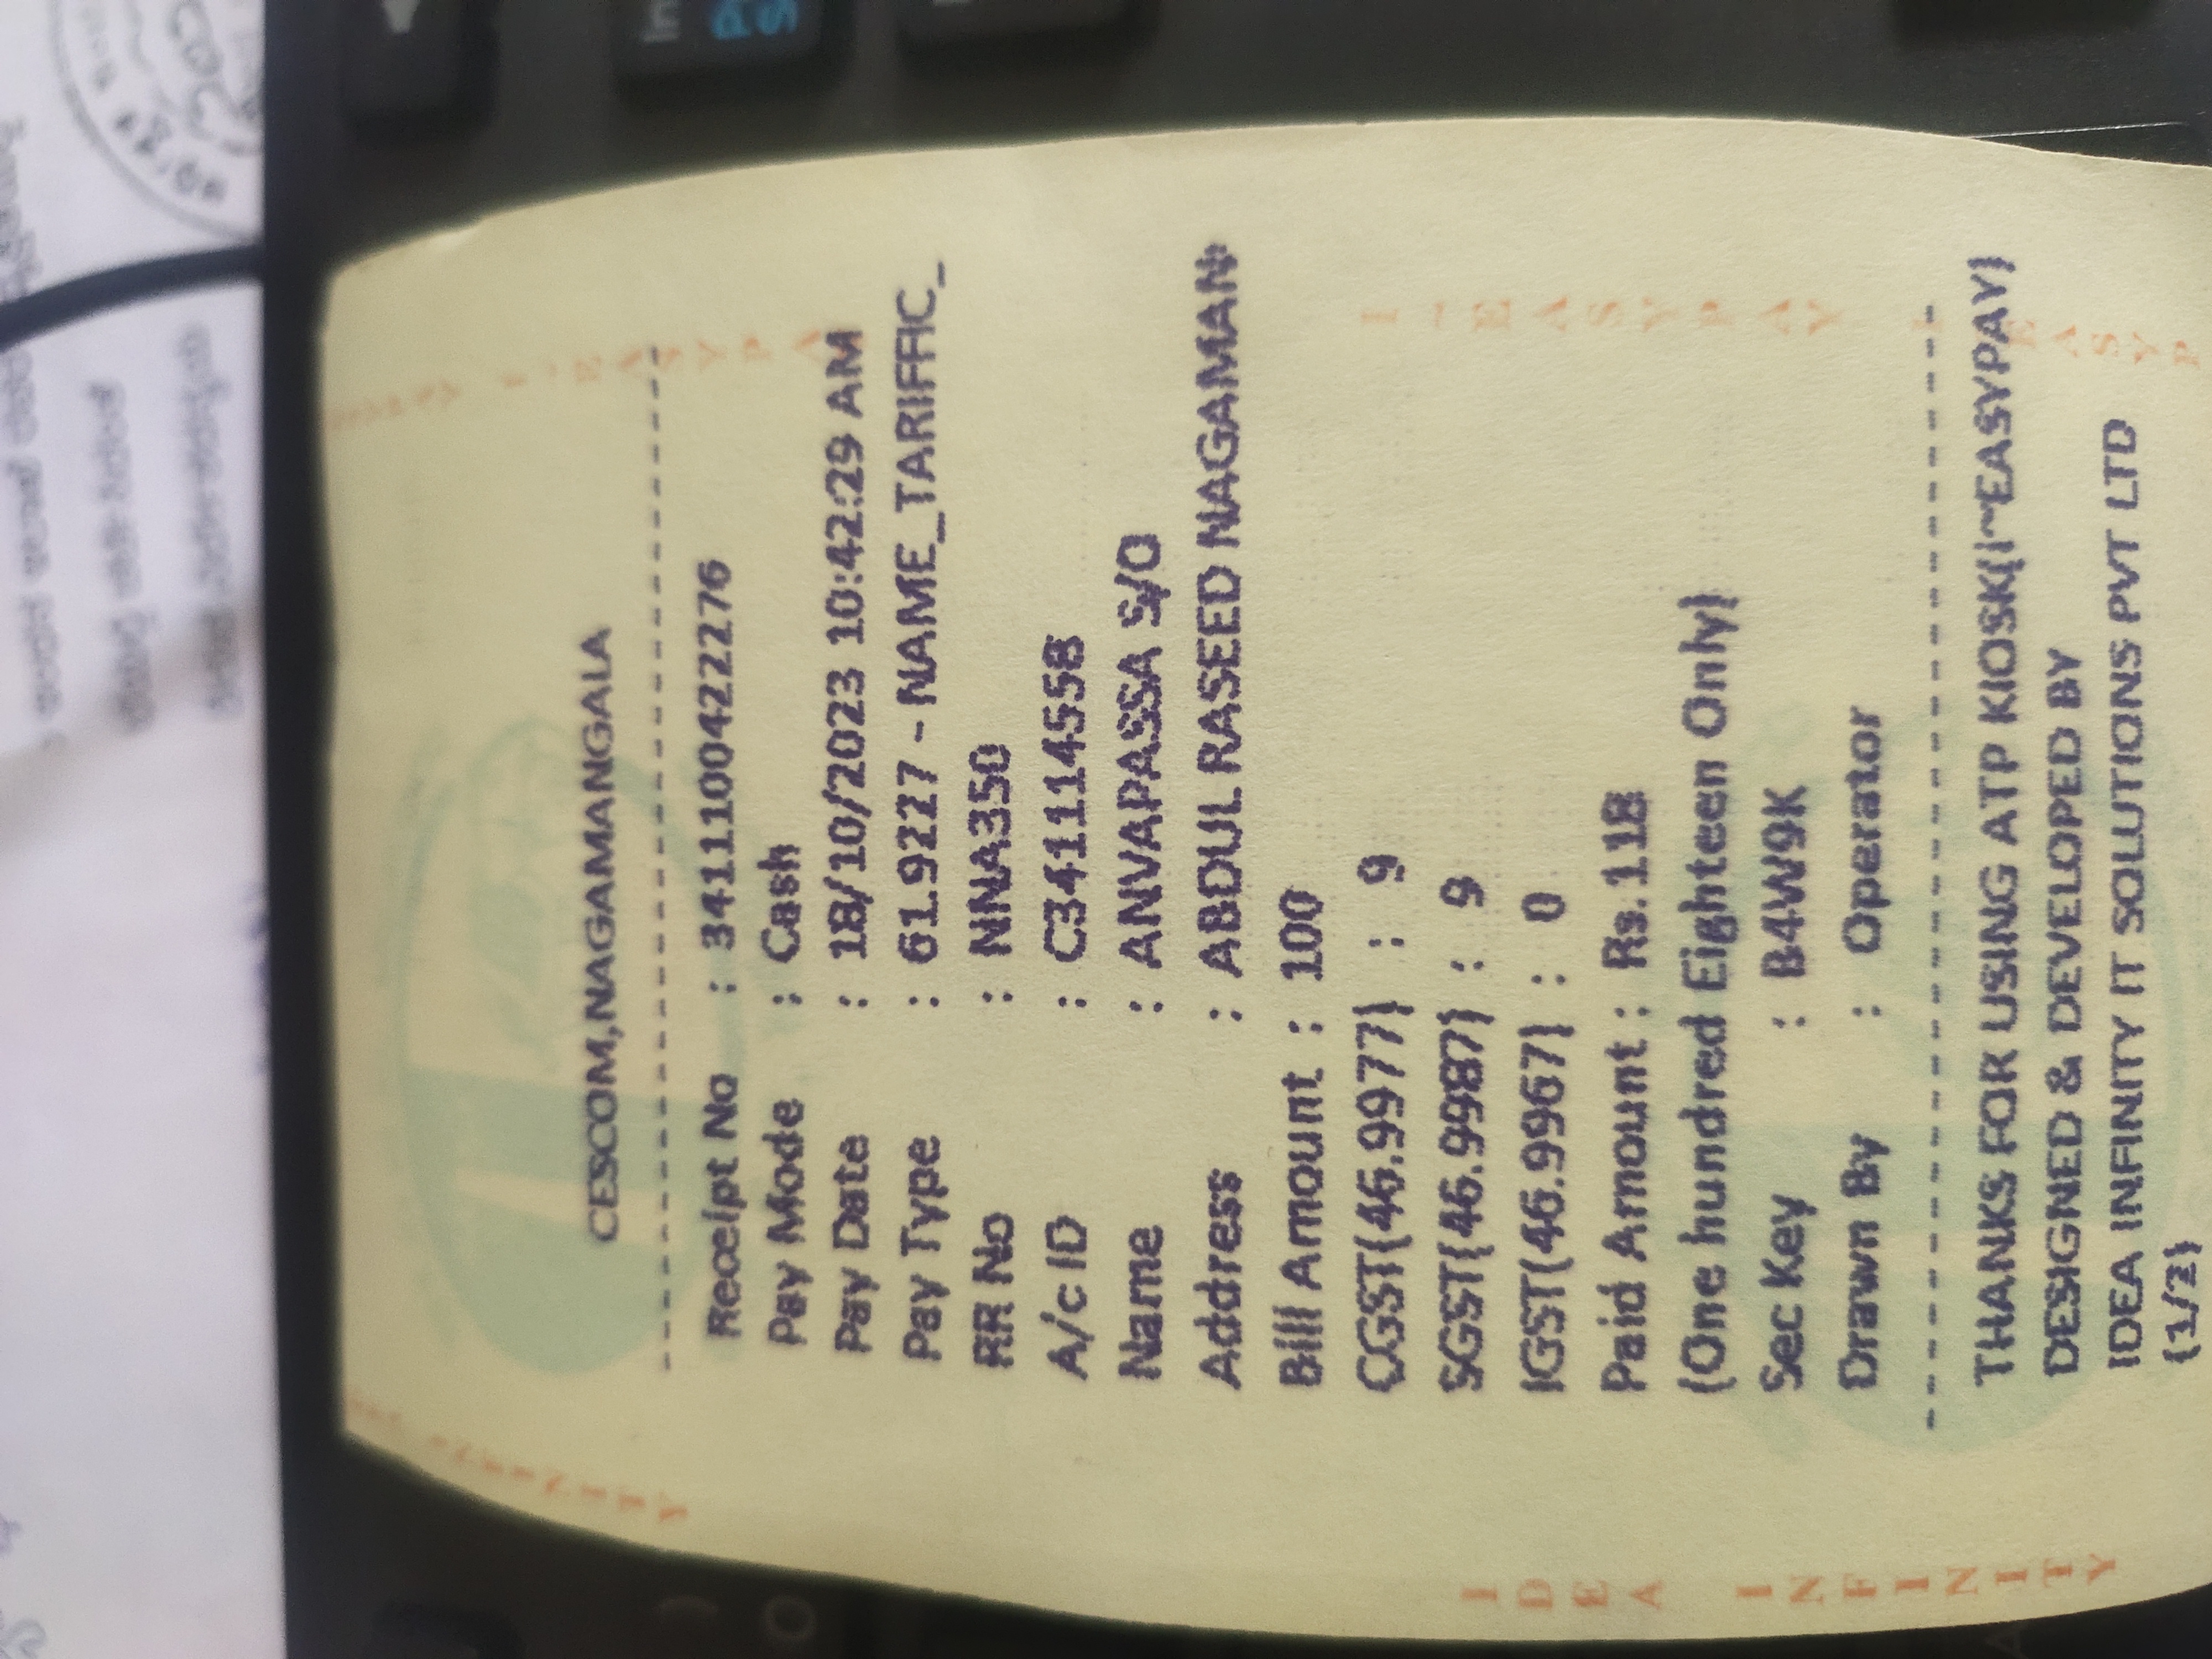 CESCOM,NAGAMANGALA
--------------------------------
Receipt No : 3411100422276
Pay Mode : Cash
Pay Date : 18/10/2023 10:42:29 AM
Pay Type : 61.9227 - NAME_TARIFFIC_
RR No : NNA350
A/c ID : C341114558
Name : ANVAPASSA S/O
Address : ABDUL RASEED NAGAMAN
Bill Amount : 100
CGST(46.9977) : 9
SGST(46.9987) : 9
IGST(46.9967) : 0
Paid Amount : Rs.118
(One hundred Eighteen Only)
Sec Key : B4W9K
Drawn By : Operator
--------------------------------
THANKS FOR USING ATP KIOSK(I~EASYPAY)
DESIGNED & DEVELOPED BY
IDEA INFINITY IT SOLUTIONS PVT LTD
(1/2)
I-EASYPAY
IDEA INFINITY